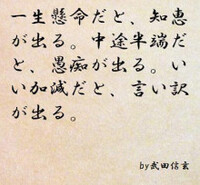 一生懸命だと、知恵
が出る。中途半端だ
と、愚痴が出る。い
い加減だと、言い訳
が出る。
by武田信玄